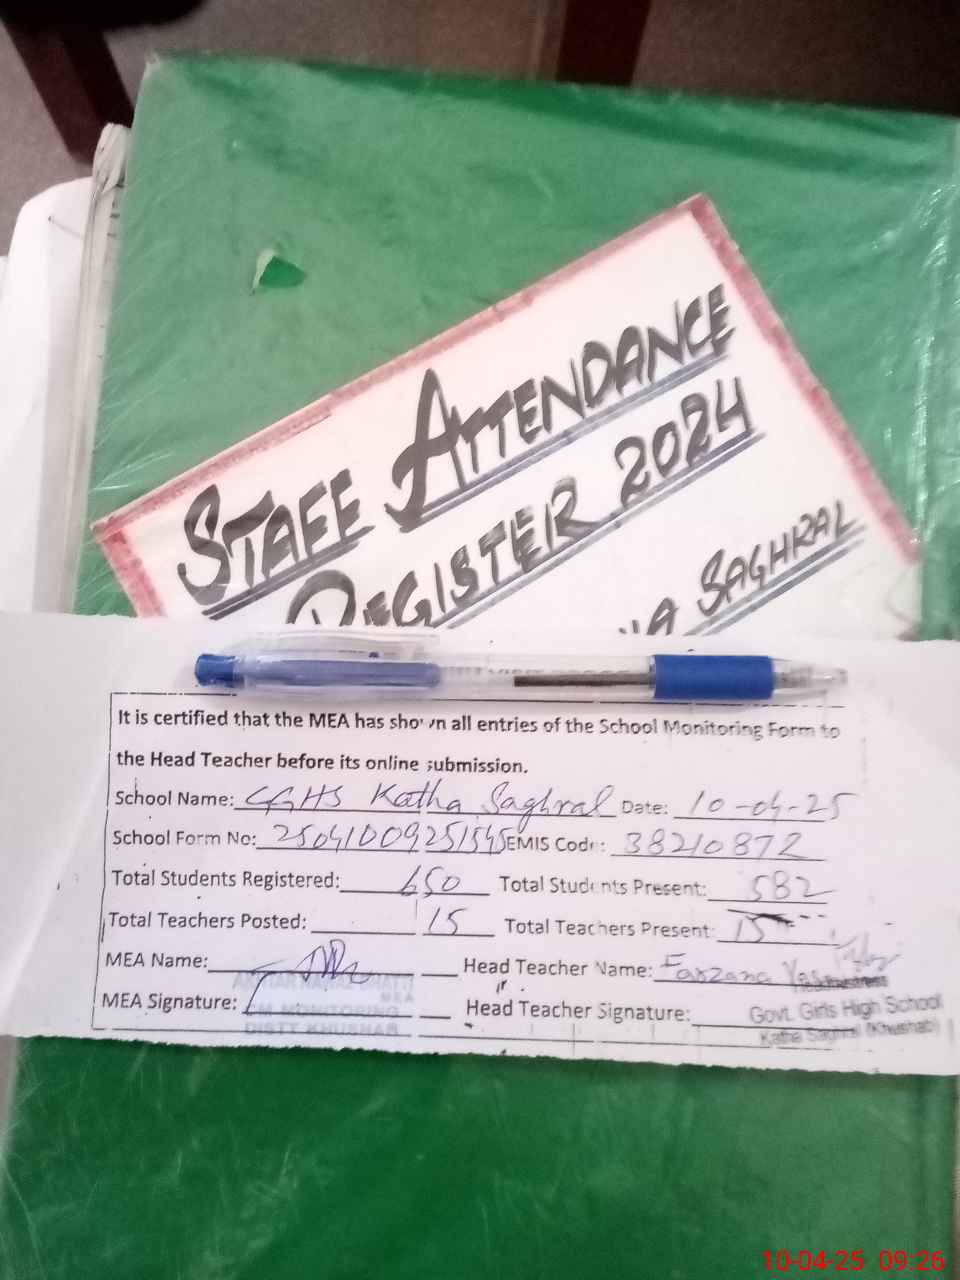 STAFF ATTENDANCE
REGISTER 2024
SAGHRAL
It is certified that the MEA has shown all entries of the School Monitoring Form to
the Head Teacher before its online submission.
School Name: GGHS Katha Saghral Date: 10-04-25
School Form No: 25041009251545 EMIS Code: 38210872
Total Students Registered: 650 Total Students Present: 582
Total Teachers Posted: 15 Total Teachers Present: 15
MEA Name: Head Teacher Name: Farzana
MEA Signature: Head Teacher Signature:
MEA
CM MONITORING
DISTT KHUSHAB
Headmistress
Govt. Girls High School
Katha Saghral (Khushab)
10-04-25 09:26